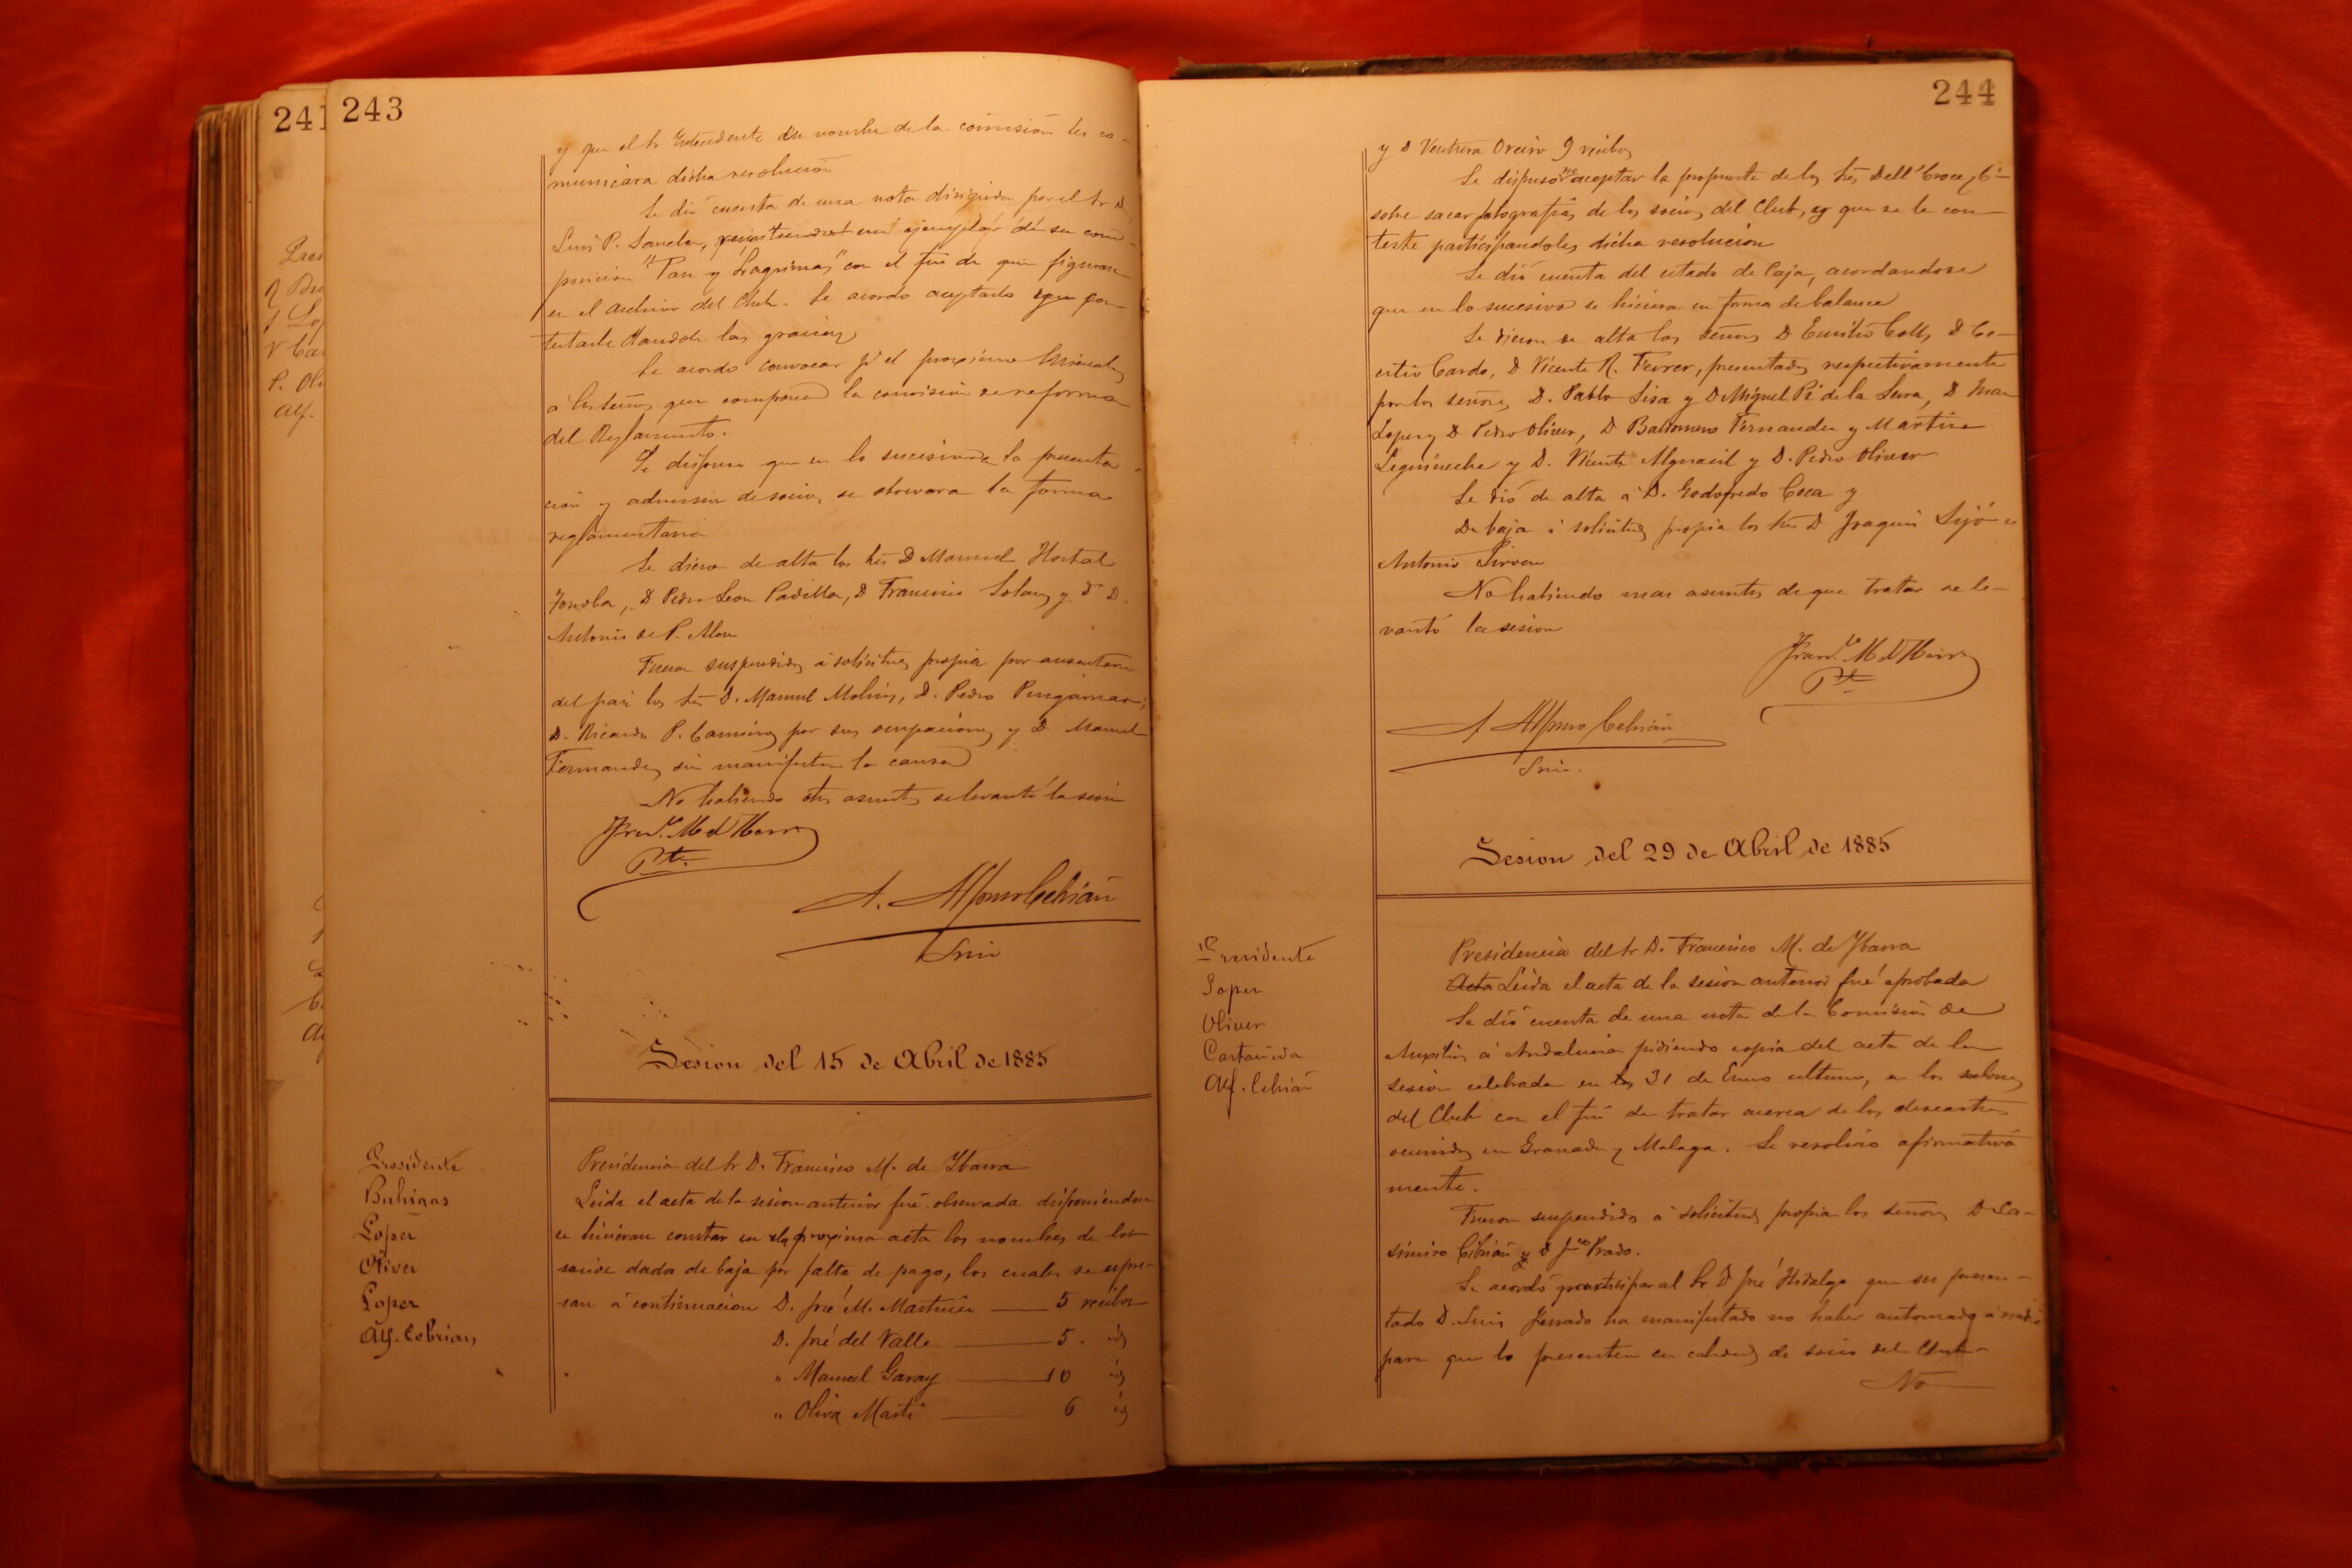 241
243
y que el Sr Intendente en nombre de la comision les co-
municara dicha resolucion
Se dió cuenta de una nota dirigida por el Sr D.
Luis P. Sanchez, un ejemplar de su com-
posicion "Pan y Lagrimas" con el fin de que figurase
en el archivo del Club. Se acordo aceptarlo y que con-
testarle dandole las gracias
Se acordo convocar pª el proximo Miercoles
a los señores que componen la comision de reforma
del Reglamento.
Se dispuso que en lo sucesivo la presenta-
cion y admision de socios, se observara la forma
reglamentaria
Se dieron de alta los Srs D Manuel Hostal
D Pedro Leon Padilla, D Francisco Solano y D.
Antonio de P. Aleu
Fueron suspendidos á solicitud propia por ausentarse
del pais los Srs D. Manuel Molins, D. Pedro Puigarnau;
D. Ricardo P. Camino por sus ocupaciones y D Manuel
Fernandez sin manifestar la causa
No habiendo otros asuntos se levantó la sesion
Franco. M de Ybarra
Pte
A. Alfonso Cebrián
Srio
Sesion del 15 de Abril de 1885
Presidente
Buhigas
Lopez
Oliver
Lopez
Alf. Cebrian
Presidencia del Sr D. Francisco M. de Ybarra
Leida el acta de la sesion anterior fué observada disponiendose
se hicieran constar en la proxima acta los nombres de los
socios dados de baja por falta de pago, los cuales se espre-
san á continuacion D. José M. Martinez — 5 recibos
D. José del Valle — 5 . id
" Manuel Garay — 10 id
" Oliva Marti — 6 id
244
y D Ventura Oreiro 9 recibos
Se dispuso no aceptar la propuesta de los Srs Dell'Croce y Cia
sobre sacar fotografias de los socios del Club, y que se le con-
teste participandoles dicha resolucion
Se dió cuenta del estado de Caja, acordandose
que en lo sucesivo se hiciera en forma de balance
Se dieron de alta los señores D Emilio Coll, D Ce-
Cardo, D Vicente R. Ferrer, presentados respectivamente
por los señores D. Pablo Lisa y D Miguel Pi de la Serra, D Juan
Lopez y D Pedro Oliver, D Baldomero Fernandez y Martin
Leguineche y D. Vicente Alguacil y D. Pedro Oliver
Se dió de alta á D. Godofredo Coca y
De baja á solicitud propia los Srs D Joaquin Sijó y
Antonio Sirven
No habiendo mas asuntos de que tratar se le-
vantó la sesion
Franco. M de Ybarra
Pte
A Alfonso Cebrián
Srio.
Sesion del 29 de Abril de 1885
Presidente
Lopez
Oliver
Castañeda
Alf. Cebrián
Presidencia del Sr D. Francisco M. de Ybarra
Acta Leida el acta de la sesion anterior fué aprobada
Se dió cuenta de una nota de la Comision de
Auxilios á Andalucia pidiendo copia del acta de la
sesion celebrada en 31 de Enero ultimo, en los salones
del Club con el fin de tratar acerca de los desastres
ocurridos en Granada y Malaga. Se resolvió afirmativa
mente.
Fueron suspendidos á solicitud propia los señores D Ca-
simiro Cibrián y D Jno Prado.
Se acordó participar al Sr D José Hidalgo que su presen-
tado D. Luis Jurado ha manifestado no haber autorizado á nadie
para que lo presenten en calidad de socio del Club-
No